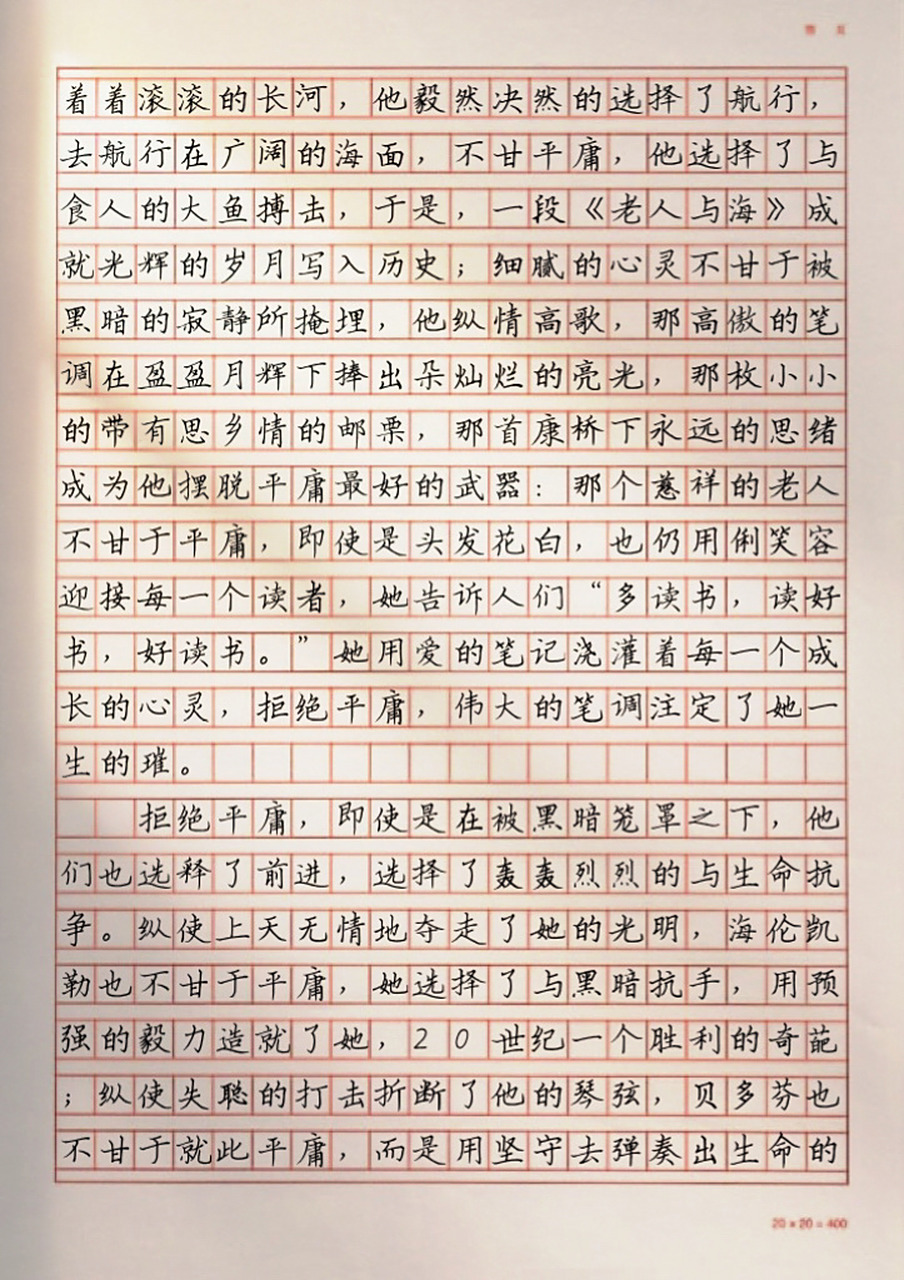 着着滚滚的长河，他毅然决然的选择了航行，
去航行在广阔的海面，不甘平庸，他选择了与
食人的大鱼搏击，于是，一段《老人与海》成
就光辉的岁月写入历史；细腻的心灵不甘于被
黑暗的寂静所掩埋，他纵情高歌，那高傲的笔
调在盈盈月辉下捧出朵灿烂的亮光，那枚小小
的带有思乡情的邮票，那首康桥下永远的思绪
成为他摆脱平庸最好的武器：那个慈祥的老人
不甘于平庸，即使是头发花白，也仍用俐笑容
迎接每一个读者，她告诉人们“多读书，读好
书，好读书。”她用爱的笔记浇灌着每一个成
长的心灵，拒绝平庸，伟大的笔调注定了她一
生的璀。
拒绝平庸，即使是在被黑暗笼罩之下，他
们也选释了前进，选择了轰轰烈烈的与生命抗
争。纵使上天无情地夺走了她的光明，海伦凯
勒也不甘于平庸，她选择了与黑暗抗手，用预
强的毅力造就了她，20世纪一个胜利的奇葩
；纵使失聪的打击折断了他的琴弦，贝多芬也
不甘于就此平庸，而是用坚守去弹奏出生命的
20×20=400